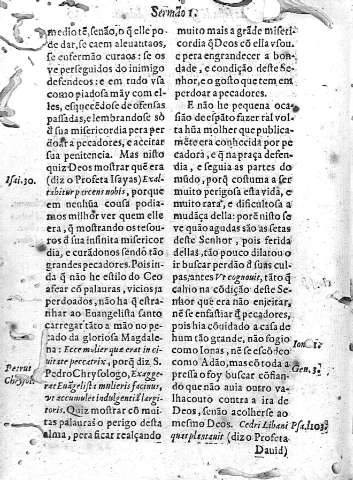 Sermão I.
medio tẽ, senão, o q̃ elle po
de dar, se caem aleuantaos,
se enfermão curaos: se os
ve perseguidos do inimigo
defendeos: e em tudo vsa
como piadosa mãy com el-
les, esquecẽdose de ofensas
passadas, e lembrandose só
da sua misericordia pera per
doar a pecadores, e aceitar
sua penitencia. Mas nisto
quiz Deos mostrar que era
Isai.30.
(diz o Profeta Isayas) Exal-
tabitur parcens nobis, porque
em nenhũa cousa podia-
mos milhor ver quem elle
era, q̃ mostrando os tesou-
ros da sua infinita misericor
dia, e curãdonos sendo tão
grandes pecadores. Pois in-
da q̃ não he estilo do Ceo
afear cõ palauras, vicios ja
perdoados, não ha q̃ estra-
nhar ao Euangelista santo
carregar tãto a mão no pe-
cado da gloriosa Magdale-
na: Ecce mulier quæ erat in ci-
uitate peccatrix, porq̃ diz S.
Petrus
Chrysol.
Pedro Chrysologo, Exagge-
rat Euãgelista mulieris facinus,
vt accumulet indulgentiã largi-
toris. Quiz mostrar cõ mui-
tas palauras o perigo desta
alma, pera ficar realçando
muito mais a grãde miseri
cordia q̃ Deos cõ ella vsou.
e pera engrandecer a bon-
dade, e condição deste Se-
nhor, e o gosto que tem em
perdoar a pecadores.
E não he pequena oca-
sião de espãto fazer tal vol
ta hũa molher que publica-
mẽte era conhecida por pe
cadora, e q̃ na praça defen-
dia, e seguia as partes do
mũdo, porq̃ costuma a ser
muito perigosa esta vida, e
muito rara, e dificultosa a
mudãça della: porẽ nisto se
ve quão agudas são as setas
deste Senhor, pois ferida
dellas, tão pouco dilatou o
ir buscar perdão de suas cul-
pas; antes Vt cognouit, tãto q̃
cahio na cõdição deste Se-
nhor que era não enjeitar,
nẽ se enfastiar de pecadores,
pois hia cõuidado a casa de
hum tão grande, não fogio
Ion. 1.
como Ionas, nẽ se escõdeo
Gen. 3.
como Adão, mas cõ toda a
pressa o foy buscar cõfian-
do que não auia outro va-
lhacouto contra a ira de
Deos, senão acolherse ao
mesmo Deos. Cedri Libani
Psa. 103.
quas plantauit (diz o Profeta
Dauid)